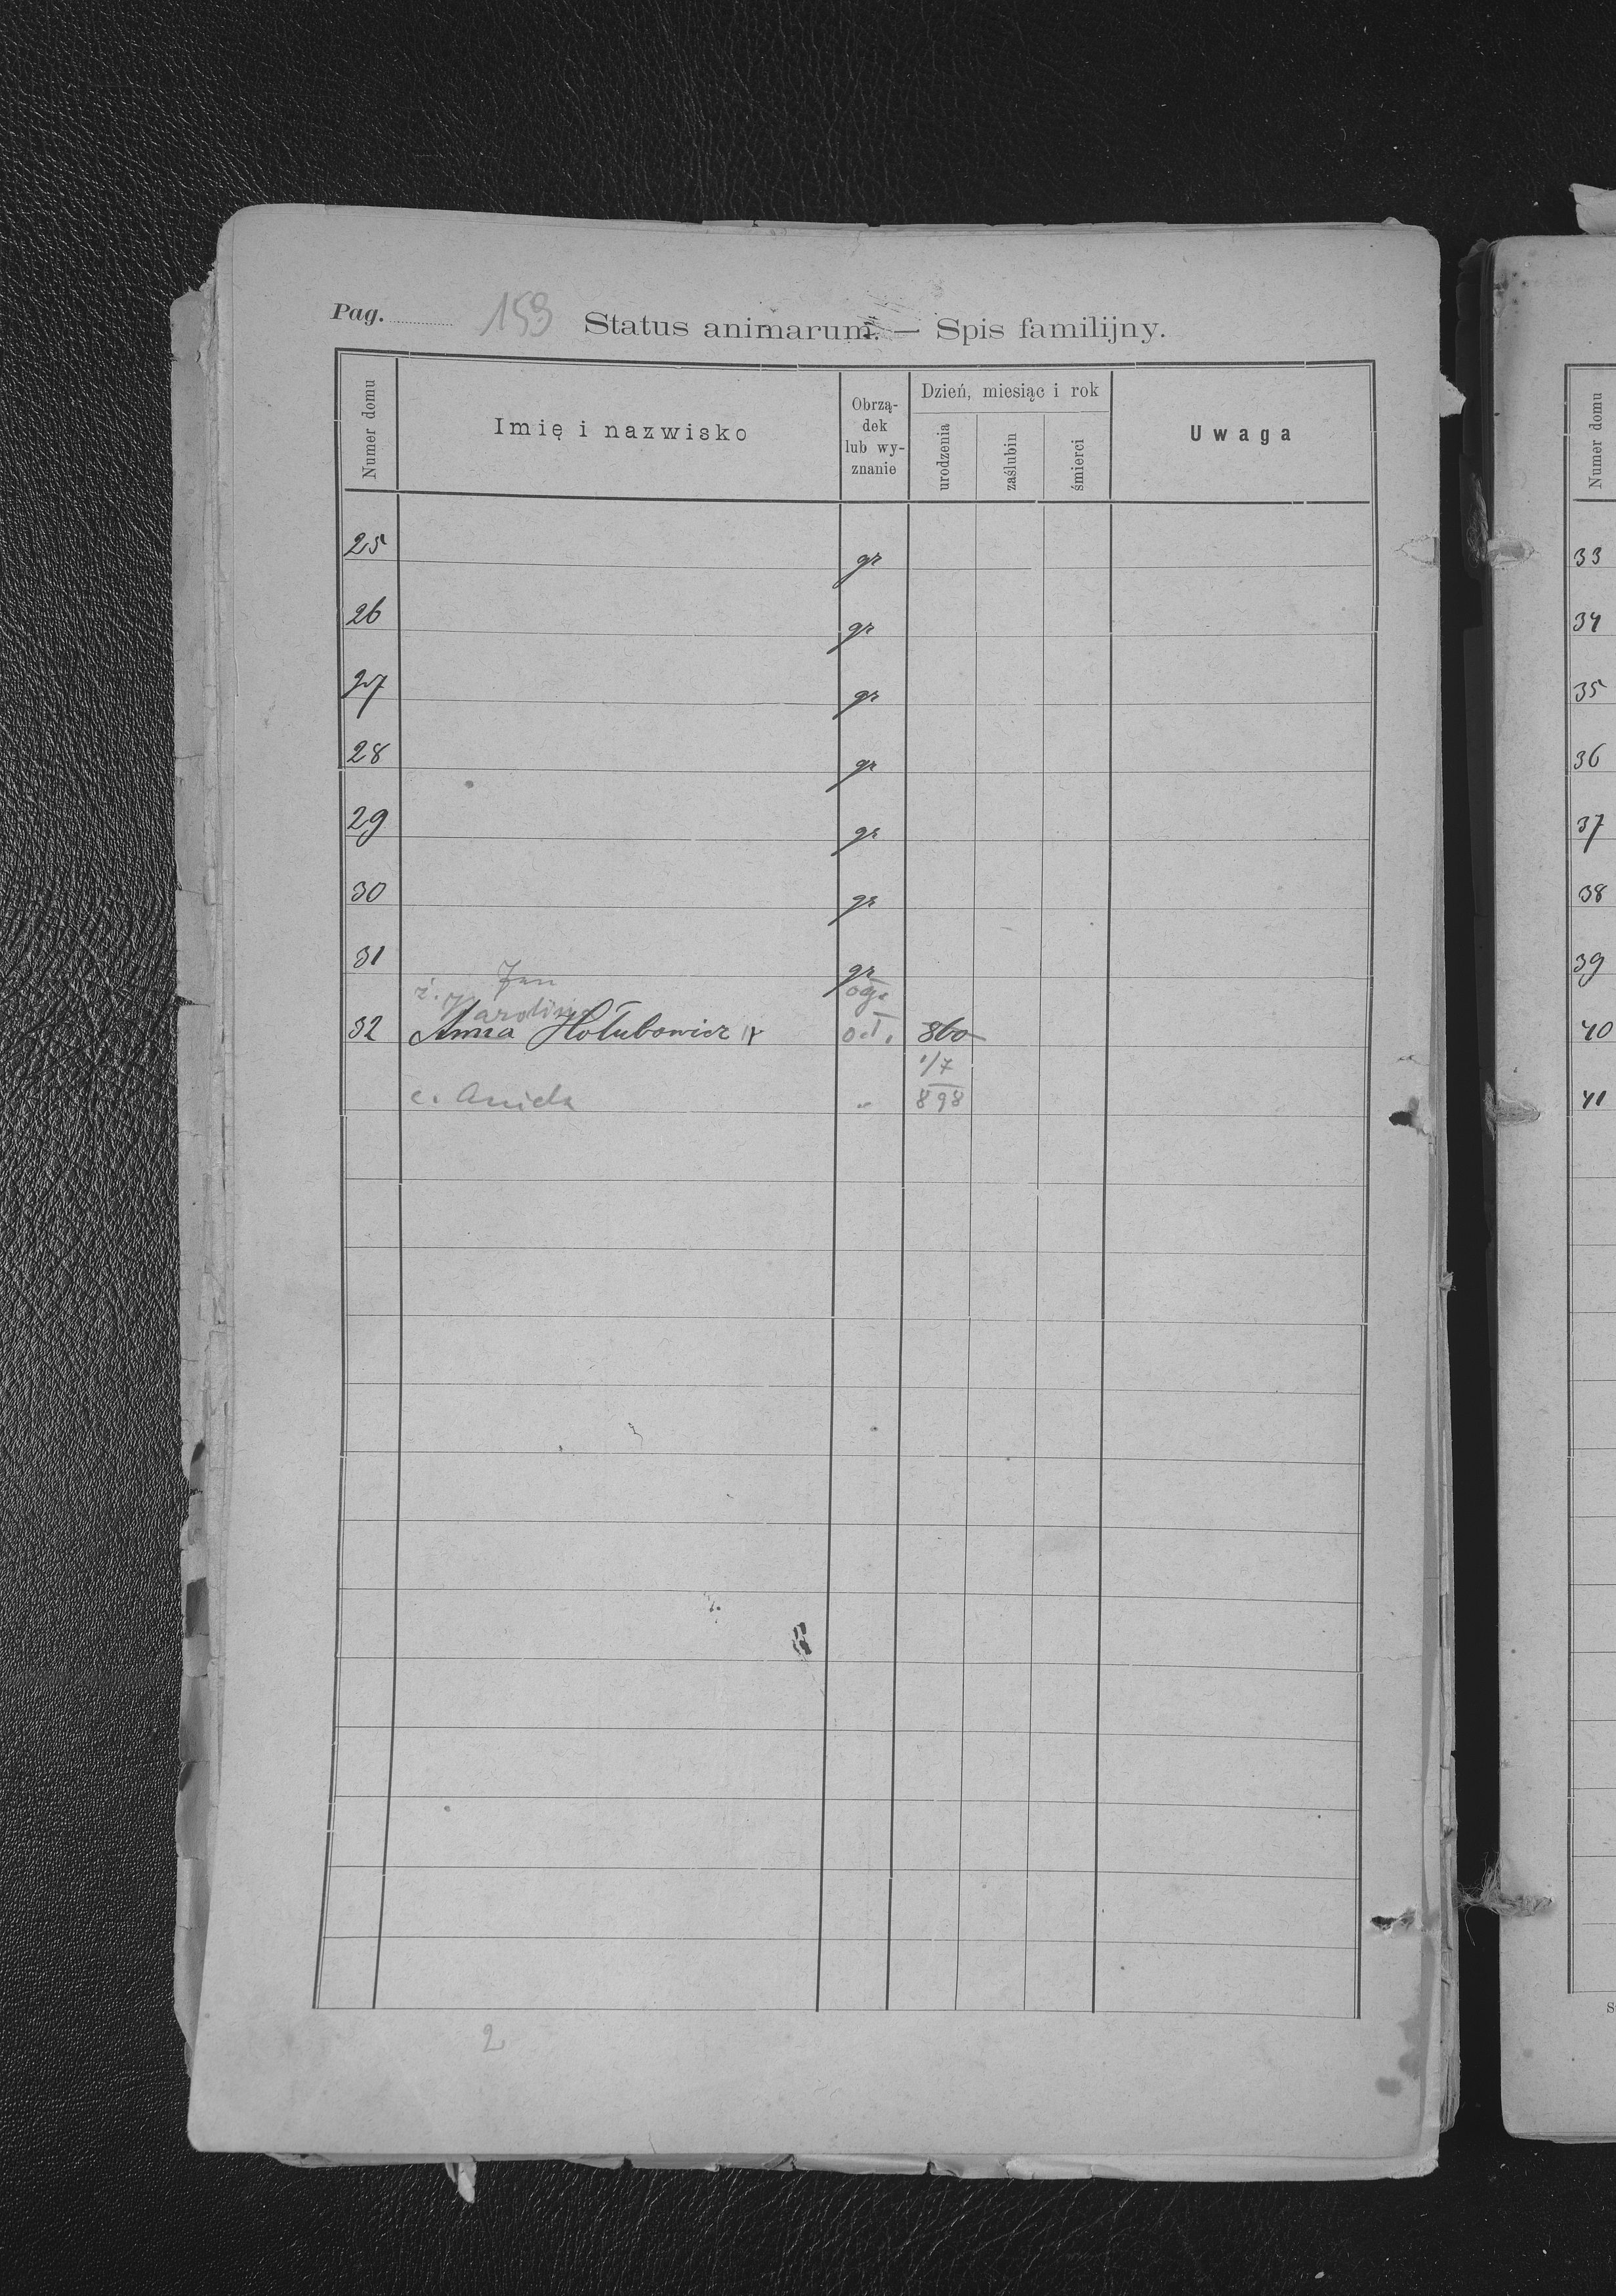 Pag. 159 Status animarum. — Spis familijny.
Numer domu
Imię i nazwisko
Obrzą-
dek
lub wy-
znanie
Dzień, miesiąc i rok
urodzenia
zaślubin
śmierci
Uwaga
25 gr
26 gr
27 gr
28 gr
29 gr
30 gr
31 gr
Jan
ż. Karolina
32 Anna Hołubowicz 860
1/7
c. Aniela " 898
2
Numer domu
33
34
35
36
37
38
39
40
41